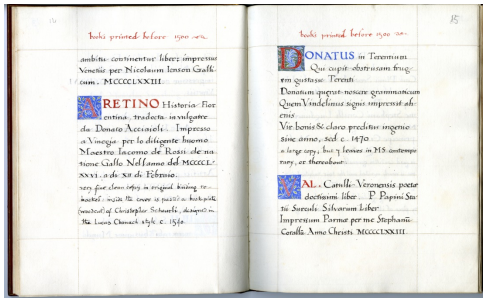 books printed before 1500 A.D.
ambitu continentur liber; impressus
Venetiis per Nicolaum Ienson Galli-
cum. MCCCCLXXIII.
ARETINO Historia Flor
entina, tradocta in vulgatre
da Donato Acciaioli. Impresso
a Vinegia per lo diligente huomo
Maestro Iacomo de Rossi de na-
tione Gallo Nell anno del MCCCCL-
XXVI. a di XII di Febraio.
very fine clean copy in original binding re-
backed: inside the cover is pasted a bookplate
of Christopher Scheurl, designed in
the Lucas Cranach style c. 1540.
books printed before 1500 A.D.
85
DONATUS in Terentium
Qui cupit obstrusam frug
em gustasse Terenti
Donatum quærat noscere grammaticum
Quem Vindelinus signis impressit ah-
enis
Vir bonis & claro preditus ingenio
sine anno, sed c. 1470.
a large copy, but 7 leaves in MS. contempo
rary, or thereabout.
VAL. Catulli Veronensis poetæ
doctissimi liber. P. Papini Sta-
tii Surculi Silvarum Liber.
Impressum Parmæ per me Stephanū
Coralliū Anno Christi MCCCCLXXIII.